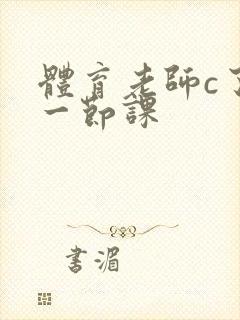 體育老師c了
一節課
書湄